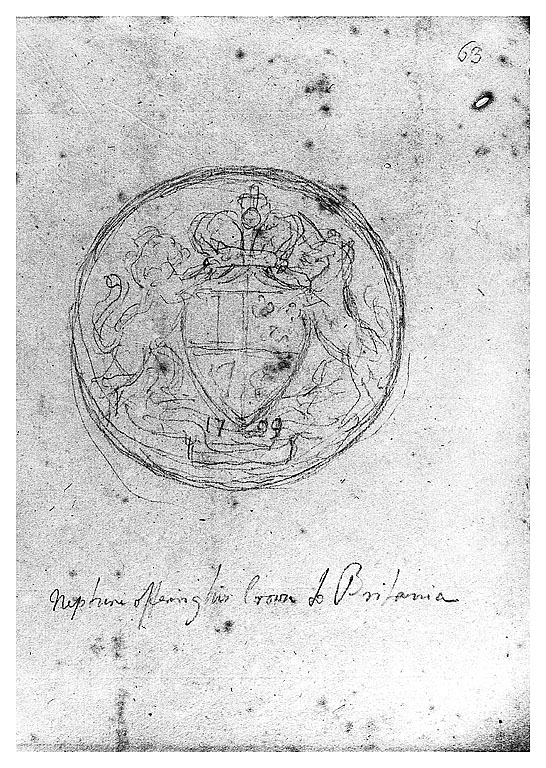 63
1799
Neptune offering his Crown to Britania